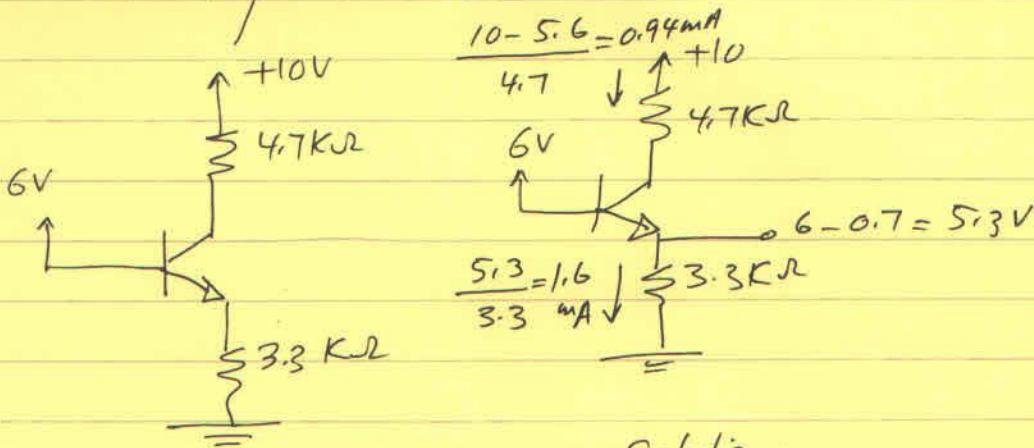 +10V
4.7KΩ
6V
3.3 KΩ
10-5.6/4.7 = 0.94mA
+10
4.7KΩ
6V
6-0.7 = 5.3V
5.3/3.3 = 1.6 mA
3.3KΩ